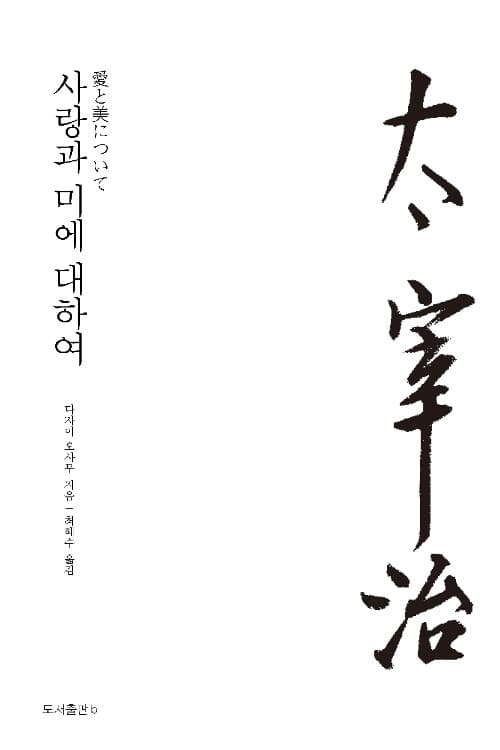 太宰治
愛と美について
사랑과 미에 대하여
다자이 오사무 지음 ─ 최혜수 옮김
도서출판 b